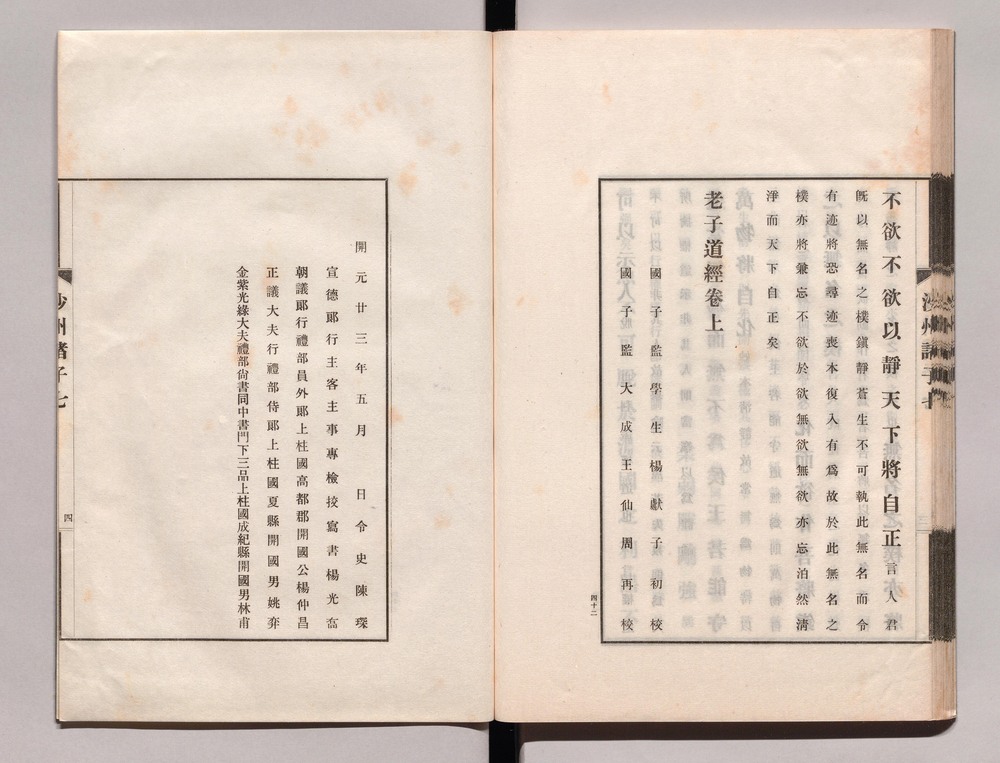 不欲不欲以靜天下將自正言人君
旣以無名之樸鎭靜蒼生不可執此無名而令
有迹將恐尋迹喪本復入有爲故於此無名之
樸亦將兼忘不欲於欲無欲無欲亦忘泊然清
淨而天下自正矣
老子道經卷上
國子監學生楊獻子初校
國子監大成王仙周再校
四十二
開元廿三年五月日令史陳琛
宣德郞行主客主事專檢挍寫書楊光喬
朝議郞行禮部員外郞上柱國高都郡開國公楊仲昌
正議大夫行禮部侍郞上柱國夏縣開國男姚弈
金紫光祿大夫禮部尙書同中書門下三品上柱國成紀縣開國男林甫
沙州諸子七
四